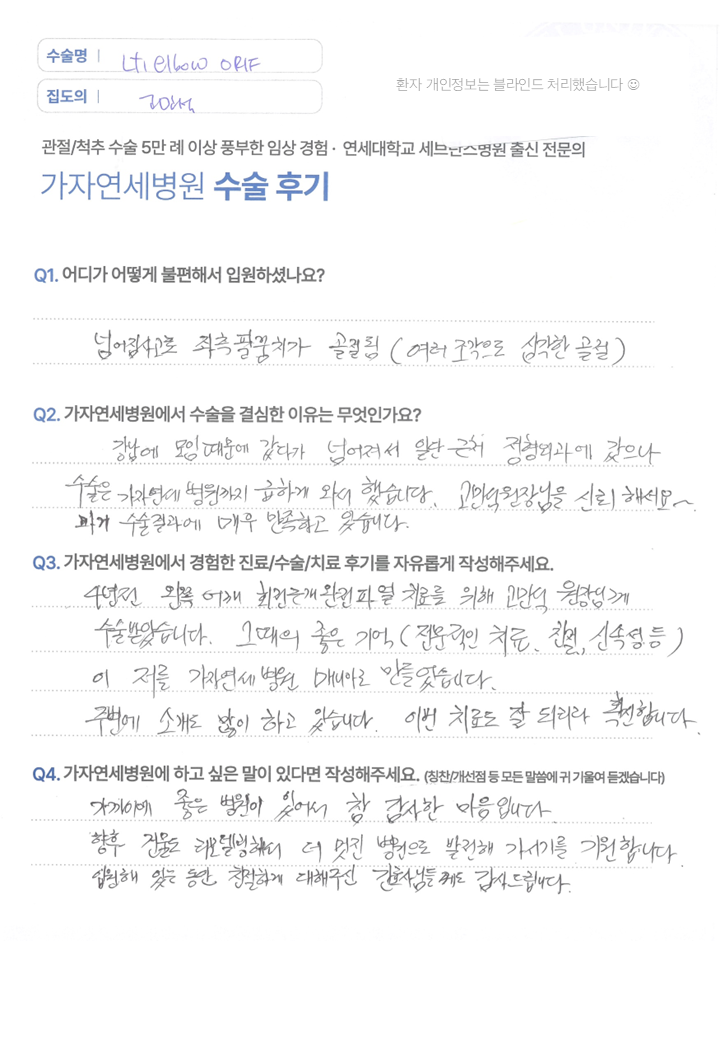 수술명 | Lt) elbow ORIF
집도의 | 고민석
환자 개인정보는 블라인드 처리했습니다 ☺
관절/척추 수술 5만 례 이상 풍부한 임상 경험 · 연세대학교 세브란스병원 출신 전문의
가자연세병원 수술 후기
Q1. 어디가 어떻게 불편해서 입원하셨나요?
넘어짐사고로 좌측팔꿈치가 골절됨 (여러 조각으로 심각한 골절)
Q2. 가자연세병원에서 수술을 결심한 이유는 무엇인가요?
강남에 모임때문에 갔다가 넘어져서 일단 근처 정형외과에 갔으나
수술은 가자연세병원까지 급하게 와서 했습니다. 고민석원장님을 신뢰해서요~
과거 수술결과에 매우 만족하고 있습니다.
Q3. 가자연세병원에서 경험한 진료/수술/치료 후기를 자유롭게 작성해주세요.
4년전 왼쪽 어깨 회전근개완전파열 치료를 위해 고민석 원장님께
수술받았습니다. 그때의 좋은 기억(전문적인 치료, 친절, 신속성 등)
이 저를 가자연세병원 매니아로 만들었습니다.
주변에 소개도 많이 하고 있습니다. 이번 치료도 잘 되리라 확신합니다.
Q4. 가자연세병원에 하고 싶은 말이 있다면 작성해주세요. (칭찬/개선점 등 모든 말씀에 귀 기울여 듣겠습니다)
가까이에 좋은 병원이 있어서 참 감사한 마음입니다.
향후 건물도 리모델링해서 더 멋진 병원으로 발전해 가시기를 기원합니다.
입원해 있는 동안 친절하게 대해주신 간호사님들께도 감사드립니다.